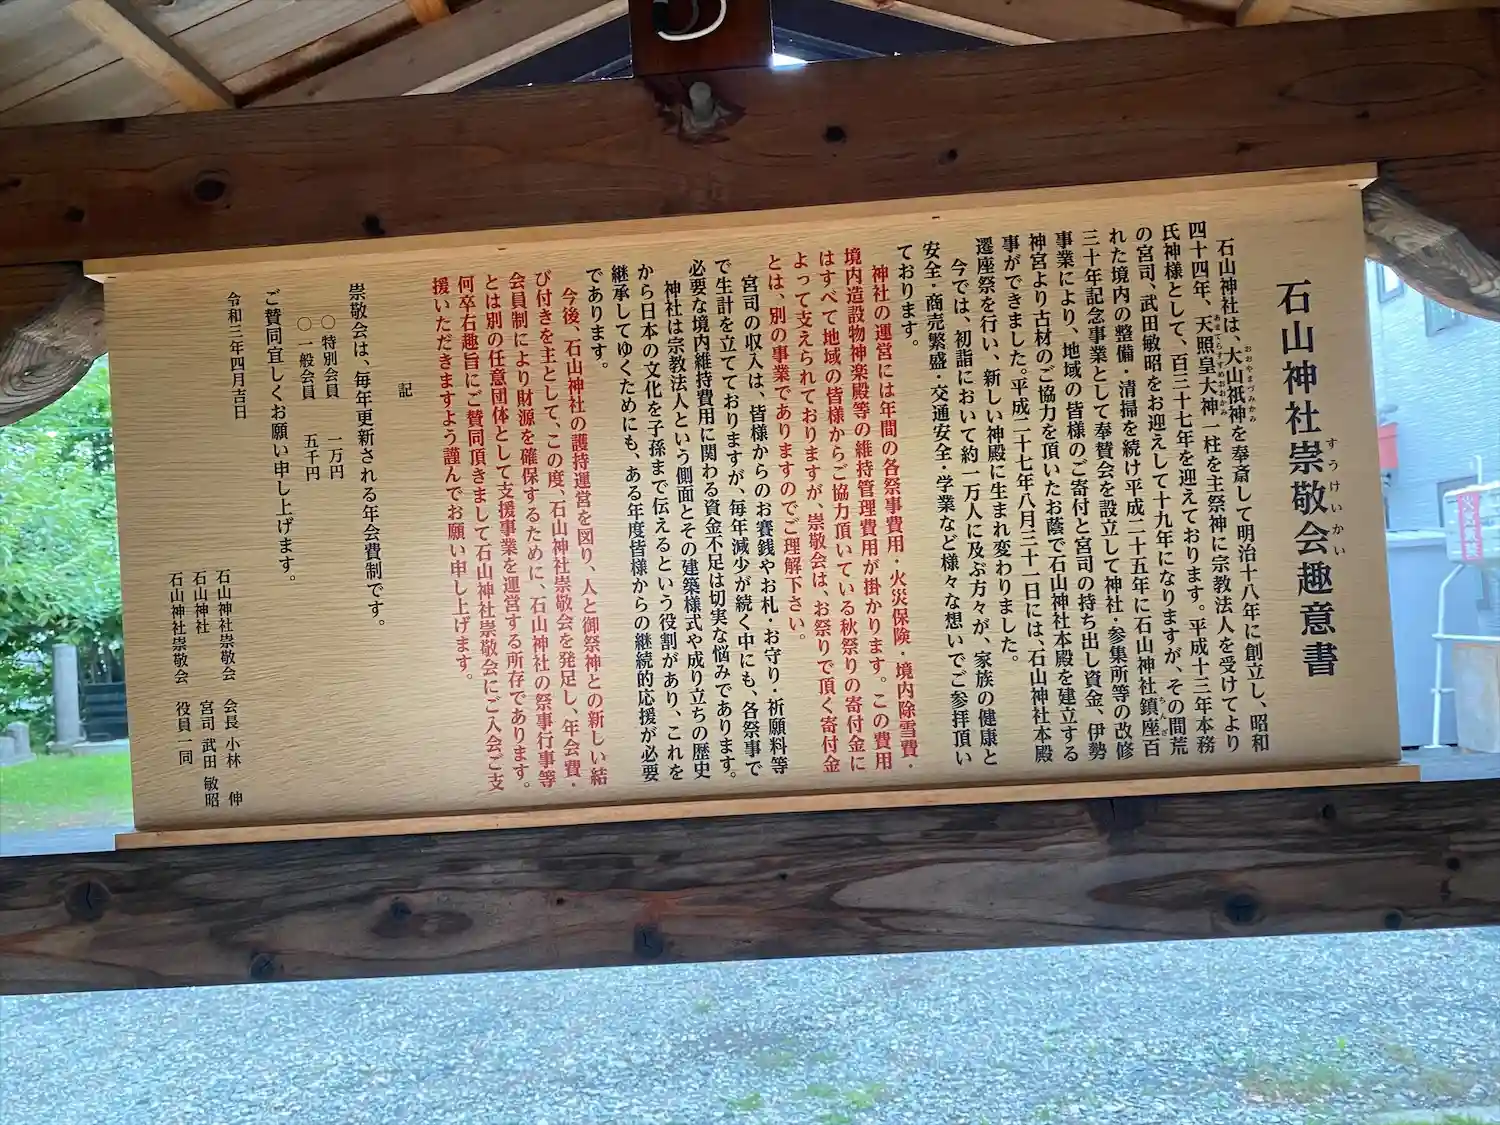 石山神社崇敬会趣意書
すうけいかい
石山神社は、大山祇神を奉斎して明治十八年に創立し、昭和
おおやまづみかみ
四十四年、天照皇大神一柱を主祭神に宗教法人を受けてより
あまてらすすめおおかみ
氏神様として、百三十七年を迎えております。平成十三年本務
の宮司、武田敏昭をお迎えして十九年になりますが、その間荒
れた境内の整備・清掃を続け平成二十五年に石山神社鎮座百
ちんざ
三十年記念事業として奉賛会を設立して神社・参集所等の改修
事業により、地域の皆様のご寄付と宮司の持ち出し資金、伊勢
神宮より古材のご協力を頂いたお蔭で石山神社本殿を建立する
事ができました。平成二十七年八月三十一日には、石山神社本殿
遷座祭を行い、新しい神殿に生まれ変わりました。
今では、初詣において約一万人に及ぶ方々が、家族の健康と
安全・商売繁盛・交通安全・学業など様々な想いでご参拝頂い
ております。
神社の運営には年間の各祭事費用・火災保険・境内除雪費・
境内造設物神楽殿等の維持管理費用が掛かります。この費用
はすべて地域の皆様からご協力頂いている秋祭りの寄付金に
よって支えられておりますが、崇敬会は、お祭りで頂く寄付金
とは、別の事業でありますのでご理解下さい。
宮司の収入は、皆様からのお賽銭やお札・お守り・祈願料等
で生計を立てておりますが、毎年減少が続く中にも、各祭事で
必要な境内維持費用に関わる資金不足は切実な悩みであります。
神社は宗教法人という側面とその建築様式や成り立ちの歴史
から日本の文化を子孫まで伝えるという役割があり、これを
継承してゆくためにも、ある年度皆様からの継続的応援が必要
であります。
今後、石山神社の護持運営を図り、人と御祭神との新しい結
び付きを主として、この度、石山神社崇敬会を発足し、年会費・
会員制により財源を確保するために、石山神社の祭事行事等
とは別の任意団体として支援事業を運営する所存であります。
何卒右趣旨にご賛同頂きまして石山神社崇敬会にご入会ご支
援いただきますよう謹んでお願い申し上げます。
記
崇敬会は、毎年更新される年会費制です。
〇特別会員 一万円
〇一般会員 五千円
ご賛同宜しくお願い申し上げます。
令和三年四月吉日
石山神社崇敬会 会長 小林 伸
石山神社 宮司 武田 敏昭
石山神社崇敬会 役員一同